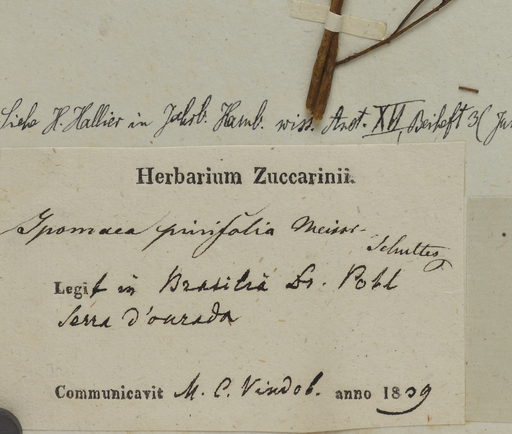 Siehe H. Hallier in Jahrb. Hamb. wiss. Anst. XVI, Beiheft 3 (
Herbarium Zuccarinii.
Ipomaea pinifolia Meissn.
Schultes
Legit in Brasilia Dr. Pohl
Serra d'ourada
Communicavit M. C. Vindob. anno 1839